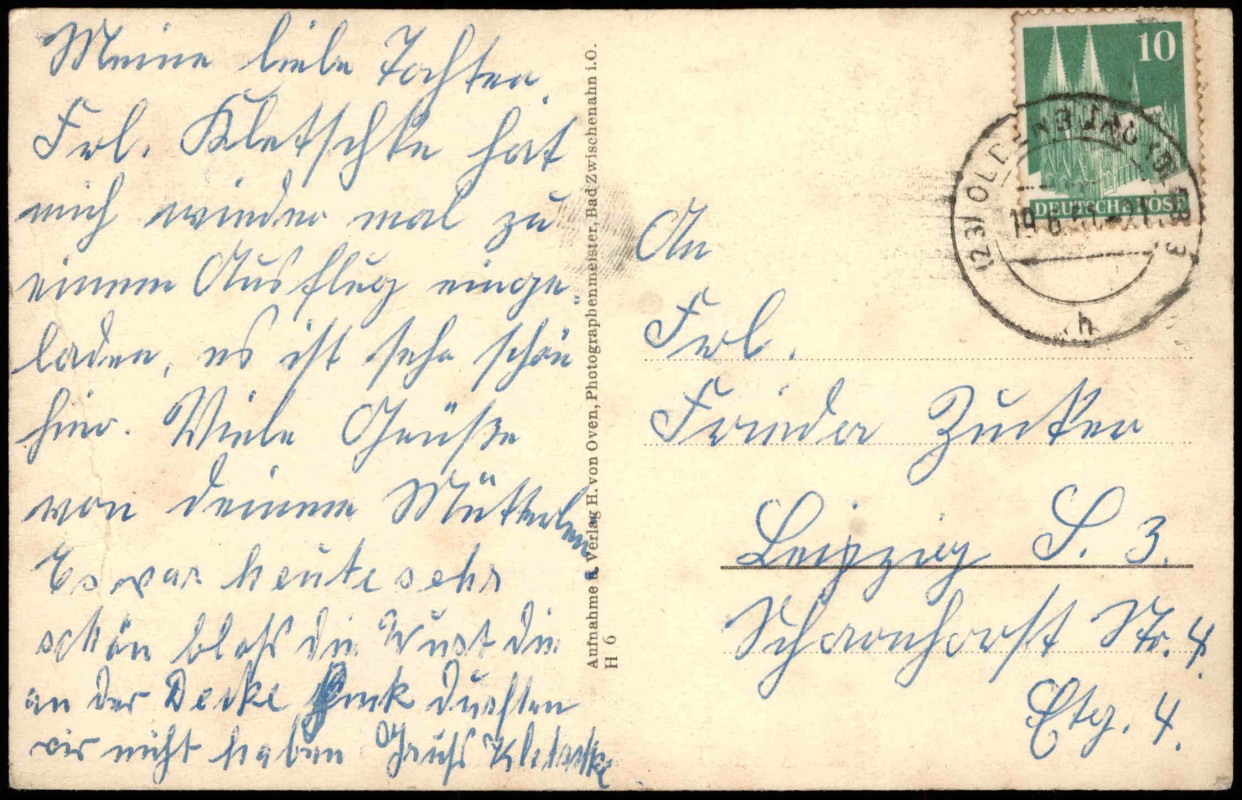 Meine liebe Tochter.
Frl. Kletschke hat
mich wieder mal zu
einem Ausflug einge-
laden, es ist sehr schön
hier. Viele Grüße
von deinem Mütterlein
Es war heute sehr
schön bloß die Wurst die
an der Decke durften
wir nicht haben Gruß Kletschke
Aufnahme & Verlag H. von Oven, Photographenmeister, Bad Zwischenahn i.O.
H 6
10
DEUTSCHE POST
(23) OLDENBURG (OLDB) 3
19.6.
h
An
Frl.
Frieda Zucker
Leipzig S. 3.
Scharnhorst Str. 4
Etg. 4.